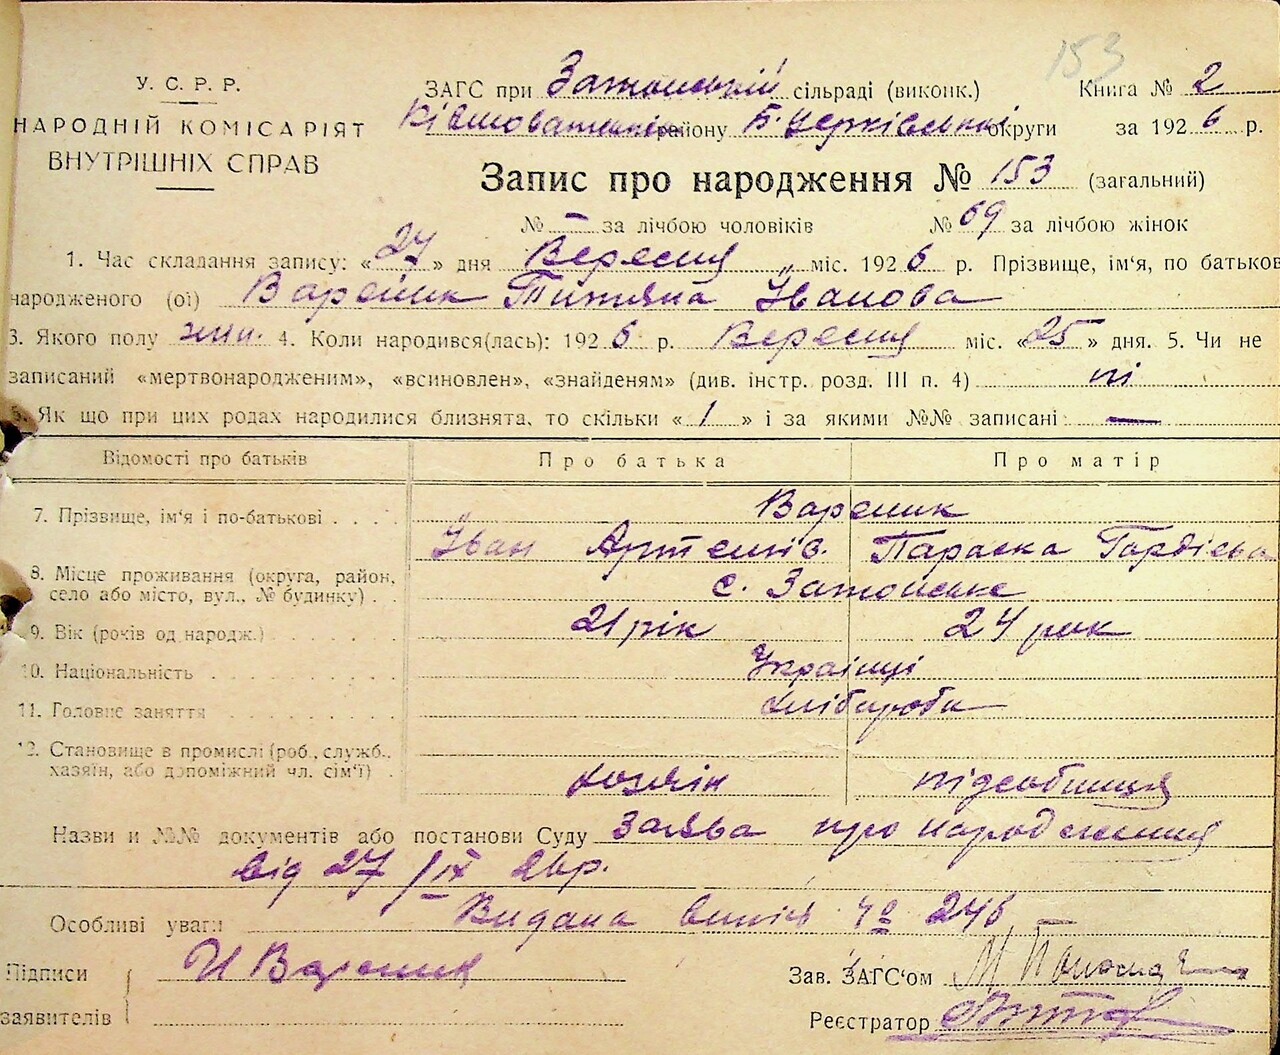 153
У. С. Р. Р.
НАРОДНІЙ КОМІСАРІЯТ
ВНУТРІШНІХ СПРАВ
ЗАГС при Затонській сільраді (виконк.) Книга № 2
району Б. Церківської округи за 1926 р.
Запис про народження № 153 (загальний)
№ – за лічбою чоловіків № 69 за лічбою жінок
1. Час складання запису: «27» дня Вересня міс. 1926 р. Прізвище, ім‘я, по батькові
народженого (ої) Вареник Титяна Іванова
3. Якого полу жін. 4. Коли народився(лась): 1926 р. Вересня міс. «25» дня. 5. Чи не
записаний «мертвонародженим», «всиновлен», «знайденям» (див. інстр. розд. III п. 4) ні
6. Як що при цих родах народилися близнята, то скільки «1» і за якими №№ записані: —
Відомості про батьків Про батька Про матір
7. Прізвище, ім‘я і по-батькові . . . . Вареник
Іван Артемів. Параска Гордієва
8. Місце проживання (округа, район,
село або місто, вул., № будинку) . . с. Затонське
9. Вік (років од народж.) 21 рік 24 рок
10. Національність Українці
11. Головне заняття хлібороби
12. Становище в промислі (роб., служб.,
хазяїн, або допоміжний чл. сім‘ї) . хозяін підсобниця
Назви и №№ документів або постанови Суду Заява про народження
від 27/IX 26 р.
Особливі уваги Видана випись № 246
Підписи И Вареник Зав. ЗАГС‘ом
заявителів Реєстратор